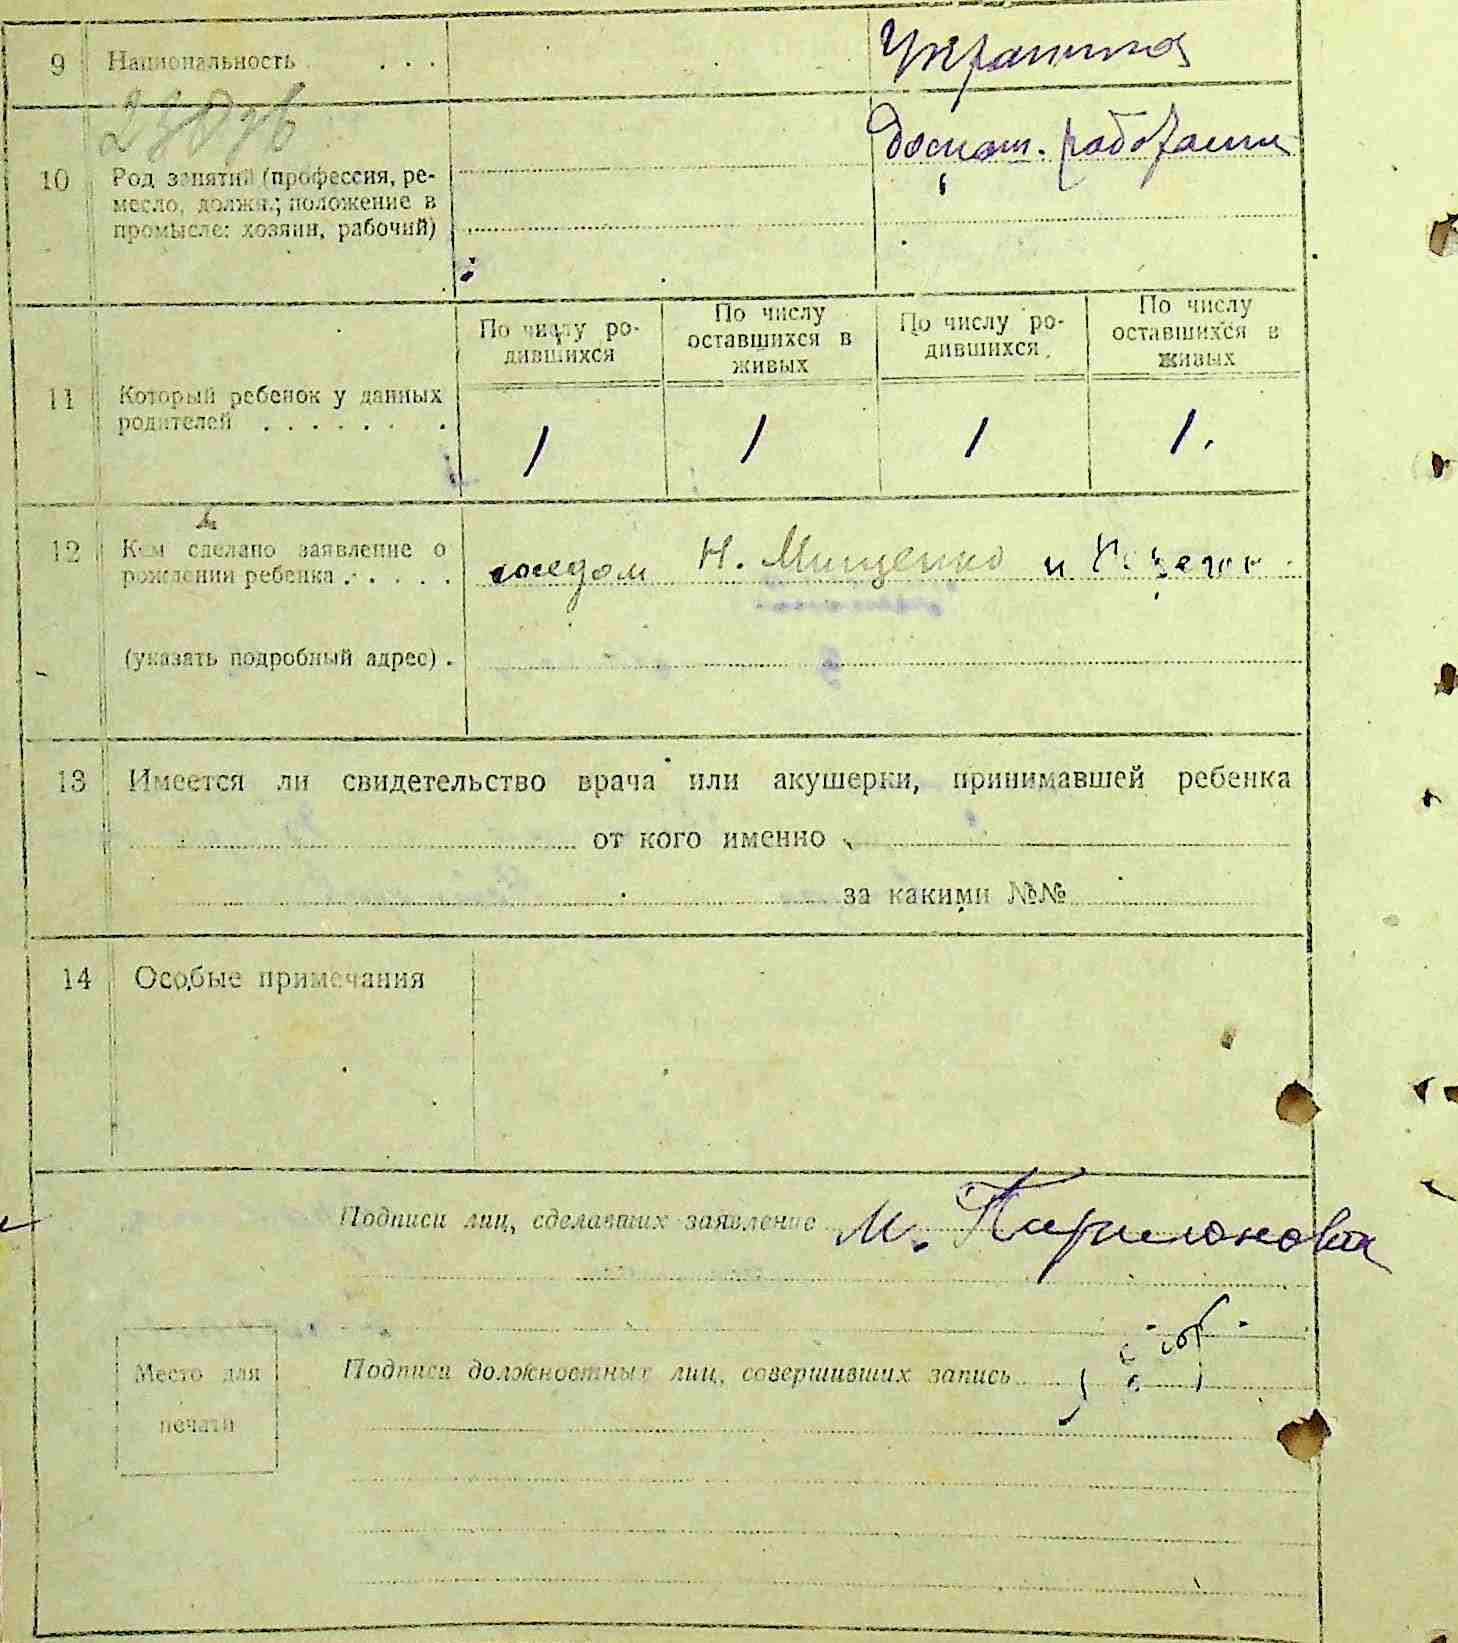 9 Национальность . . . .
Украинка
10 Род занятий (профессия, ре-
месло, должн.; положение в
промысле: хозяин, рабочий)
По числу ро-
дившихся
По числу
оставшихся в
живых
По числу ро-
дившихся
По числу
оставшихся в
живых
11 Который ребенок у данных
родителей . . . . . . .
1 1 1 1.
12 Кем сделано заявление о
рождении ребенка . . . . .
соседом Н. Мищенко и
(указать подробный адрес) .
13 Имеется ли свидетельство врача или акушерки, принимавшей ребенка
от кого именно
за какими №№
14 Особые примечания
Подписи лиц, сделавших заявление М.
Подписи должностных лиц, совершивших запись
Место для
печати